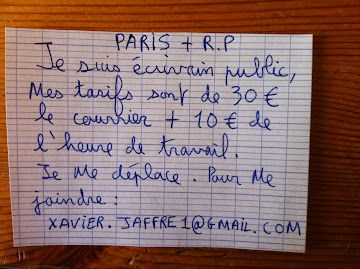 PARIS + R.P
Je suis écrivain public,
Mes tarifs sont de 30 €
le courrier + 10 € de
l'heure de travail.
Je Me déplace. Pour Me
joindre :
XAVIER.JAFFRE1@GMAIL.COM